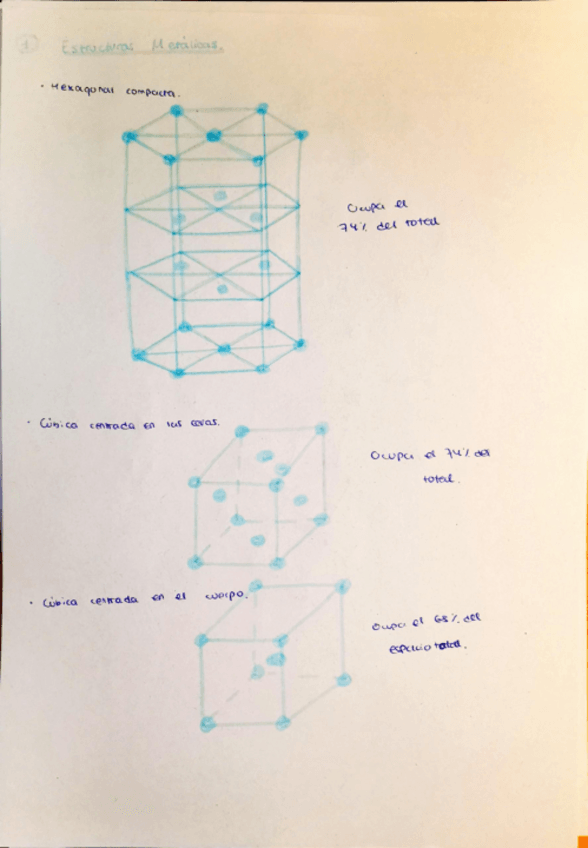 1 Estructuras Metálicas.
· Hexagonal compacta.
Ocupa el
74% del total
· Cúbica centrada en las caras.
Ocupa el 74% del
total.
· Cúbica centrada en el cuerpo.
Ocupa el 68% del
espacio total.